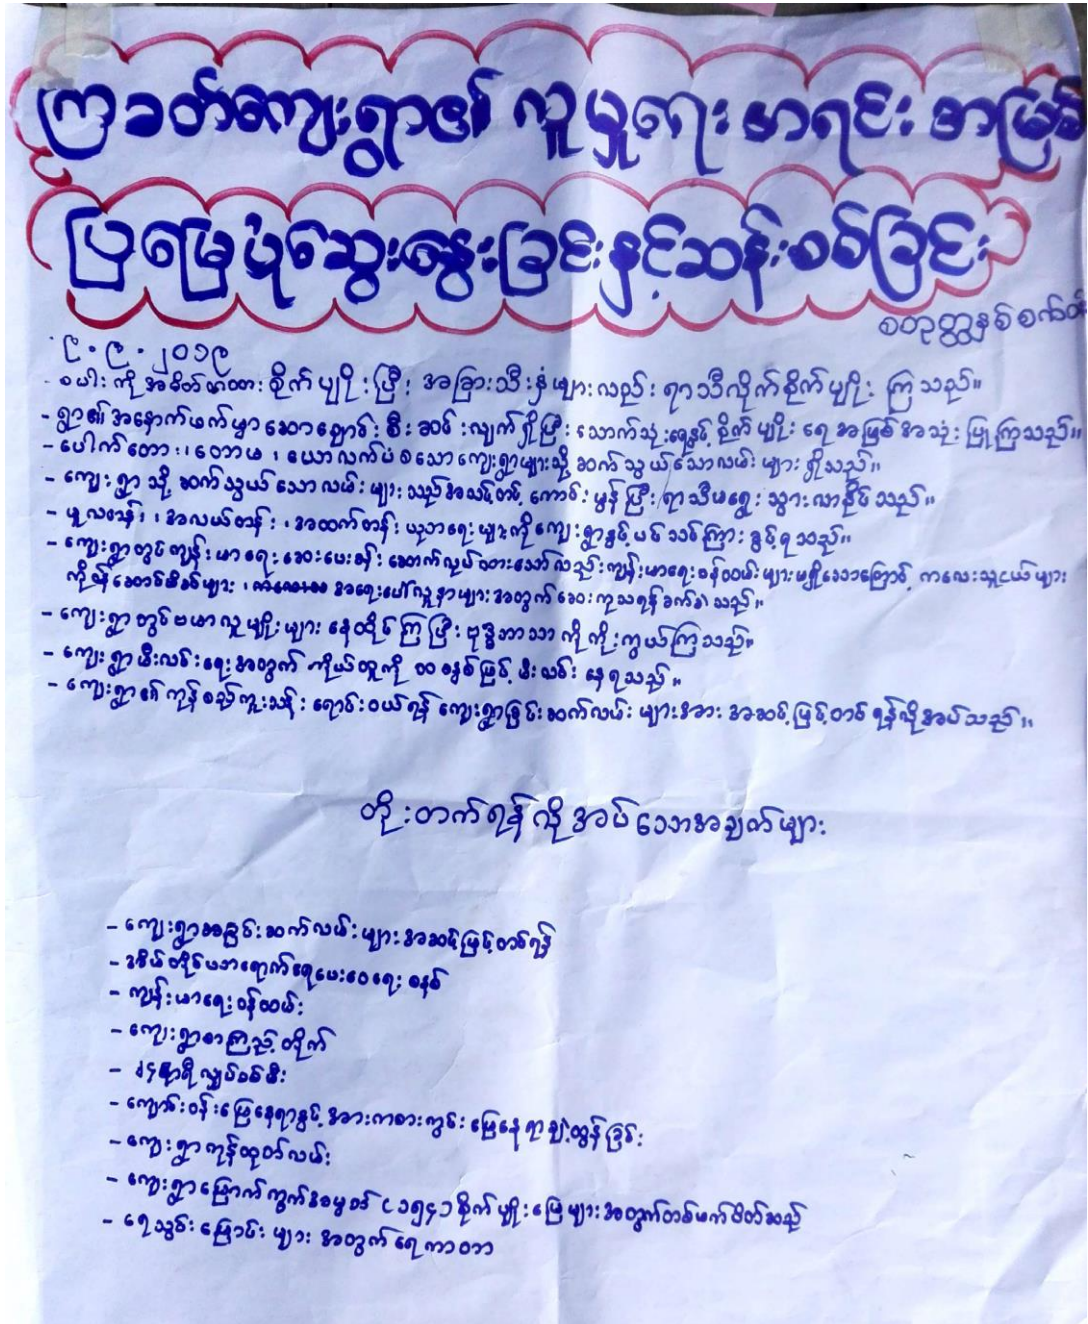 ကြာခတ်ကျေးရွာ၏ လူမှုရေး စာရင်း အမြစ်
ပြမြေပုံဆွေးနွေးခြင်းနှင့်ဆန်းစစ်ခြင်း
၉.၉.၂၀၁၉
စပါး ကို အဓိတ်ထား စိုက်ပျိုးပြီး အခြားသီးနှံများလည်း ရာသီလိုက်စိုက်ပျိုး ကြသည်။
- ရွာ၏ အနောက်ဖက်မှာ ဆောချောင်း စီးဆင်းလျက်ရှိပြီး သောက်သုံးရေနှင့် စိုက်ပျိုးရေ အဖြစ် အသုံးပြုကြသည်။
- ပေါက်တော၊ တောမ၊ ယောလက်ပံ စသော ကျေးရွာများသို့ ဆက်သွယ်သောလမ်းများ ရှိသည်။
- ကျေးရွာသို့ ဆက်သွယ်သောလမ်းများသည် အသင့်တင့် ကောင်းမွန်ပြီး ရာသီမရွေး သွားလာနိုင်သည်။
- မူလတန်း၊ အလယ်တန်း၊ အထက်တန်း ပညာရေးများကို ကျေးရွာနှင့် သင်ကြားခွင့်ရသည်။
- ကျေးရွာတွင် ကျန်းမာရေးဆေးပေးခန်း ဆောက်လုပ်ထားသော်လည်း ကျန်းမာရေးဝန်ထမ်းများမရှိသောကြောင့် ကလေးသူငယ်များ
ကိုယ်ဝန်ဆောင်မိခင်များ၊ အရေးပေါ်လူနာများအတွက် ဆေးကုသရန်ခက်ခဲသည်။
- ကျေးရွာတွင် ဗမာလူမျိုးများ နေထိုင်ကြပြီး ဗုဒ္ဓဘာသာကို ကိုးကွယ်ကြသည်။
- ကျေးရွာမီးလင်းရေးအတွက် ကိုယ်ထူကိုယ်ထ စနစ်ဖြင့် မီးလင်းနေရသည်။
- ကျေးရွာ၏ ကုန်စည်ကူးသန်း ရောင်းဝယ်ရန် ကျေးရွာချင်းဆက်လမ်းများအား အဆင့်မြှင့်တင်ရန်လိုအပ်သည်။
တိုးတက်ရန်လိုအပ်သောအချက်များ
- ကျေးရွာအချင်းဆက်လမ်းများအဆင့်မြှင့်တင်ရန်
- အိမ်တိုင်မရောက်ရေပေးဝေရေး စနစ်
- ကျန်းမာရေးဝန်ထမ်း
- ကျေးရွာစာကြည့်တိုက်
- ၂၄နာရီလျှပ်စစ်မီး
- ကျောင်းဝန်းမြေနေရာနှင့် အားကစားကွင်းမြေနေရာချဲ့ထွင်ခြင်း
- ကျေးရွာကုန်ထုတ်လမ်း
- ကျေးရွာမြောက်ကွက်အမှတ် စိုက်ပျိုးမြေများအတွက်
- ရေသွင်းမြောင်းများ အတွက်ရေကာတာ